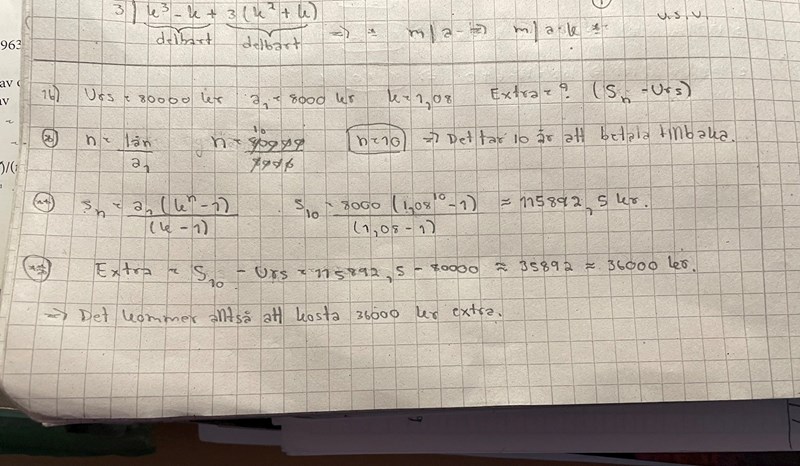 3 | k³ - k + 3 (k² + k)
delbart delbart => = m | a => m | a·k u.s.v.
963
av
av
16) Urs = 80000 kr a₁ = 8000 kr k = 1,08 Extra = ? (Sₙ - Urs)
n = lån / a₁ n = 80000 / 8000 n=10 => Det tar 10 år att betala tillbaka.
Sₙ = a₁ (kⁿ - 1) / (k - 1) S₁₀ = 8000 (1,08¹⁰ - 1) / (1,08 - 1) ≈ 115892,5 kr.
Extra = S₁₀ - Urs = 115892,5 - 80000 ≈ 35892 ≈ 36000 kr.
=> Det kommer alltså att kosta 36000 kr extra.